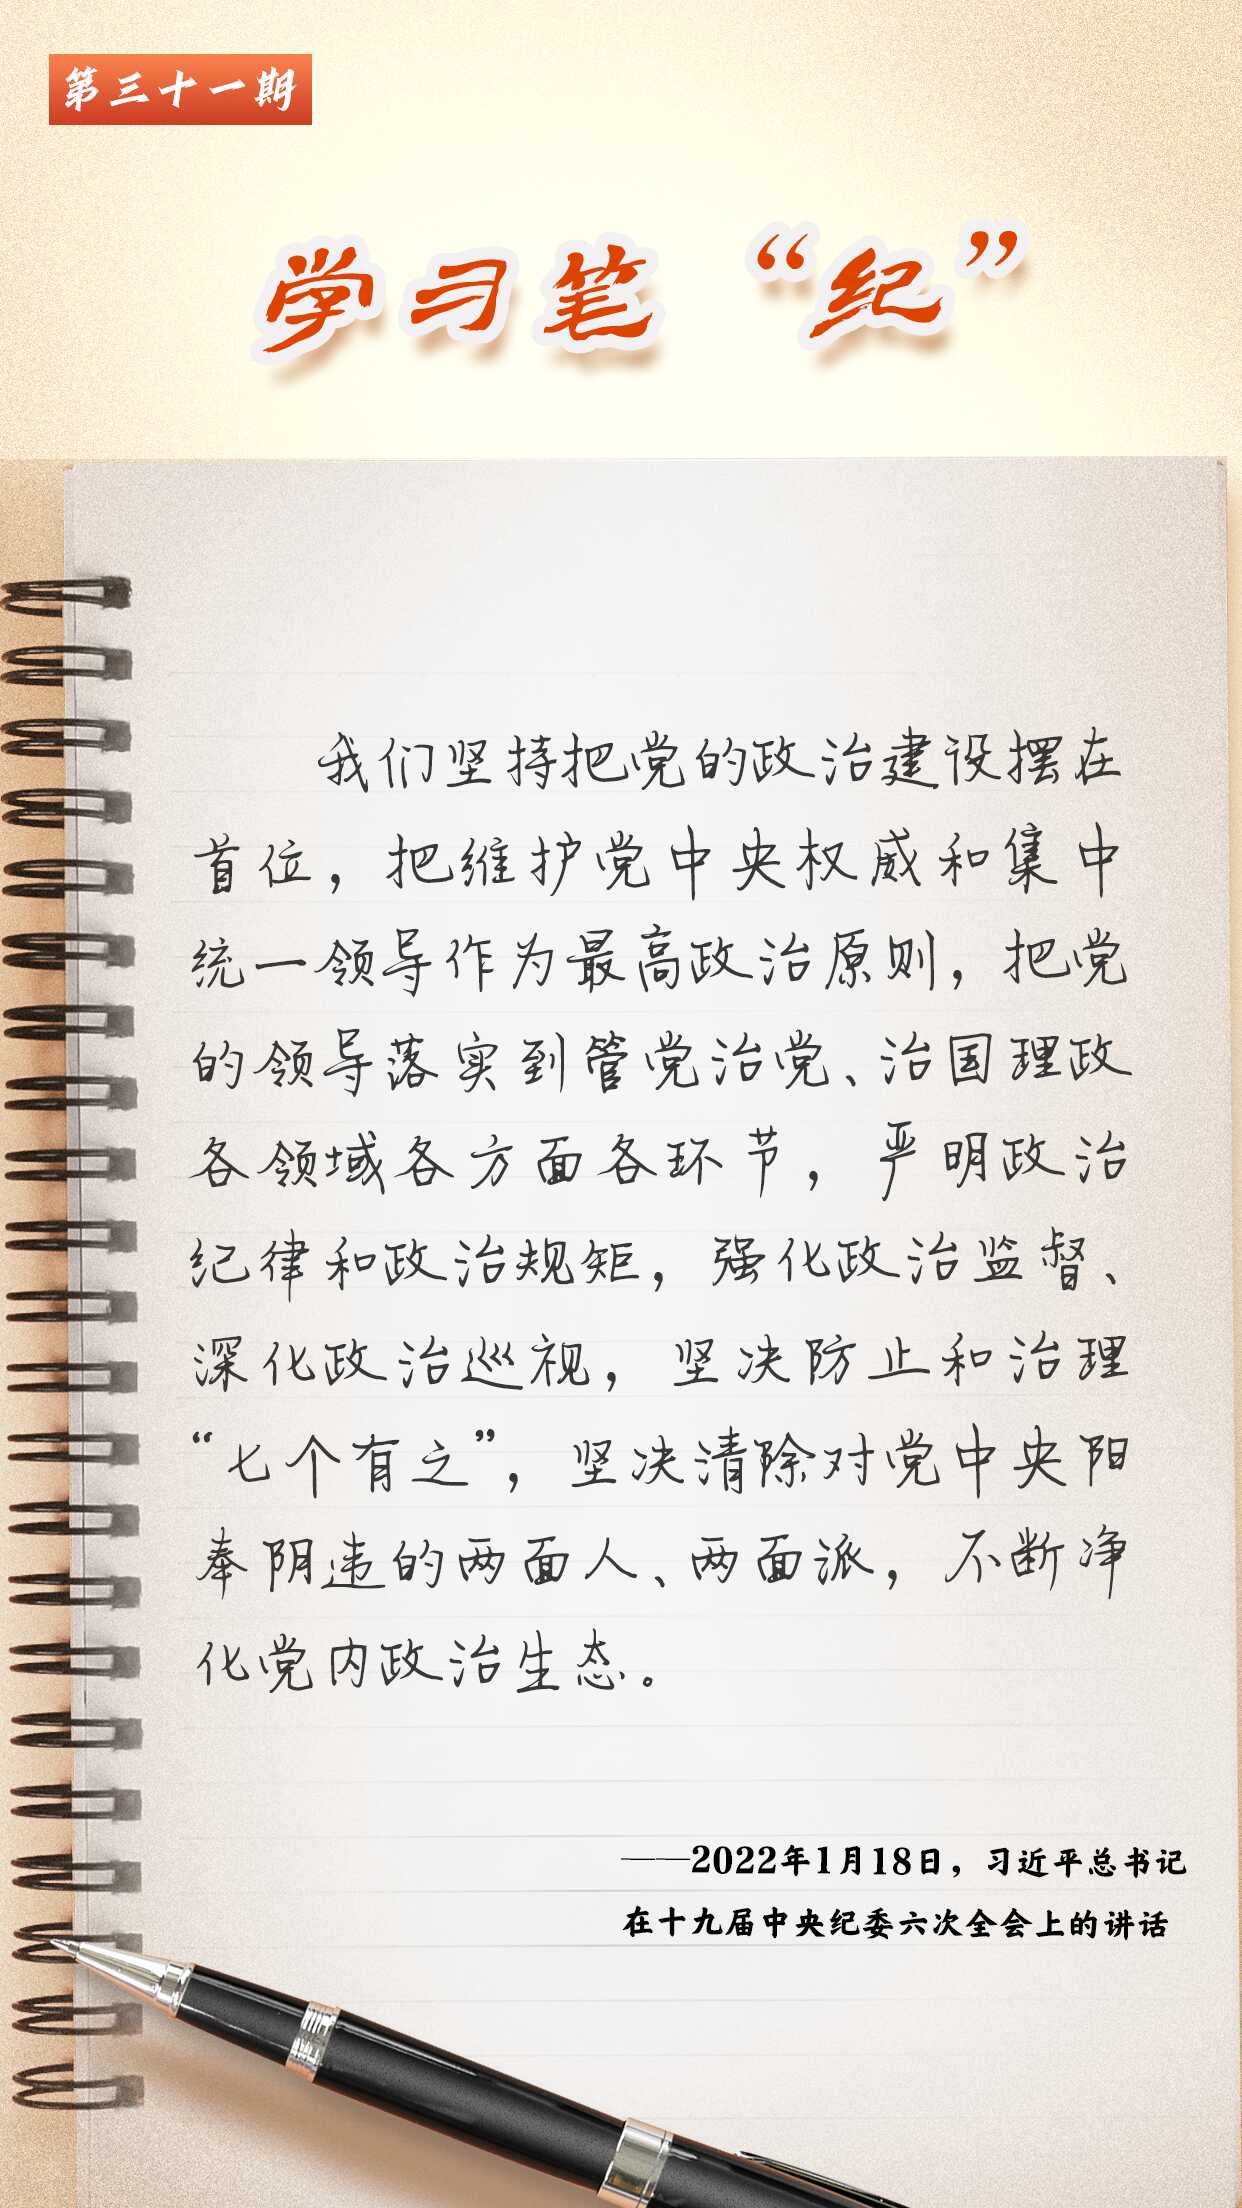 第三十一期
学习笔“纪”
我们坚持把党的政治建设摆在
首位，把维护党中央权威和集中
统一领导作为最高政治原则，把党
的领导落实到管党治党、治国理政
各领域各方面各环节，严明政治
纪律和政治规矩，强化政治监督、
深化政治巡视，坚决防止和治理
“七个有之”，坚决清除对党中央阳
奉阴违的两面人、两面派，不断净
化党内政治生态。
——2022年1月18日，习近平总书记
在十九届中央纪委六次全会上的讲话